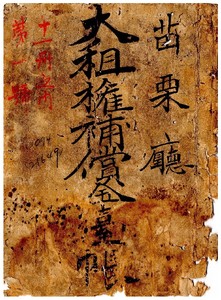 苗栗廳
大租權補償金臺帳
十一冊之內
第一號